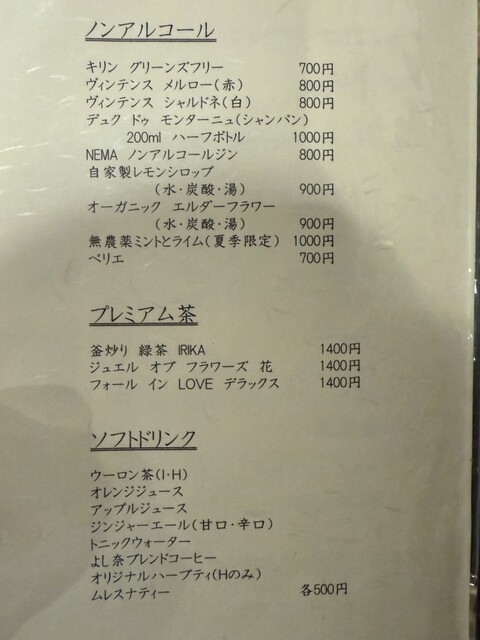 ノンアルコール
キリン グリーンズフリー 700円
ヴィンテンス メルロー(赤) 800円
ヴィンテンス シャルドネ(白) 800円
デュク ドゥ モンターニュ(シャンパン)
200ml ハーフボトル 1000円
NEMA ノンアルコールジン 800円
自家製レモンシロップ
(水・炭酸・湯) 900円
オーガニック エルダーフラワー
(水・炭酸・湯) 900円
無農薬ミントとライム(夏季限定) 1000円
ペリエ 700円
プレミアム茶
釜炒り 緑茶 IRIKA 1400円
ジュエル オブ フラワーズ 花 1400円
フォール イン LOVE デラックス 1400円
ソフトドリンク
ウーロン茶(I・H)
オレンジジュース
アップルジュース
ジンジャーエール(甘口・辛口)
トニックウォーター
よし奈ブレンドコーヒー
オリジナルハーブティ(Hのみ)
ムレスナティー 各500円